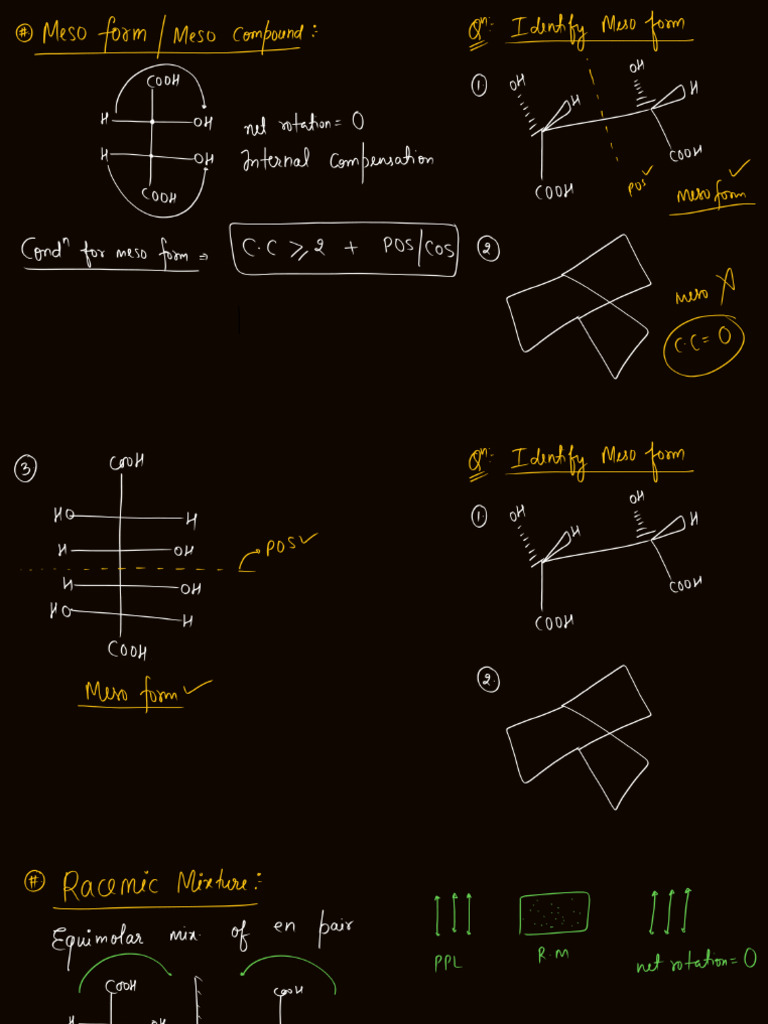 # Meso form / Meso Compound :
COOH
H OH
H OH
COOH
net rotation = 0
Internal Compensation
Condⁿ for meso form ⇒
C.C ⩾ 2 + POS/COS
Qⁿ: Identify Meso form
① OH H OH H
COOH COOH
POS ✓
Meso form ✓
②
meso X
C.C = 0
③
COOH
HO H
H OH
POS ✓
H OH
HO H
COOH
Meso form ✓
Qⁿ: Identify Meso form
①. OH H OH H
COOH COOH
②.
# Racemic Mixture :
Equimolar mix. of en pair
COOH COOH
H OH
PPL R.M net rotation = 0